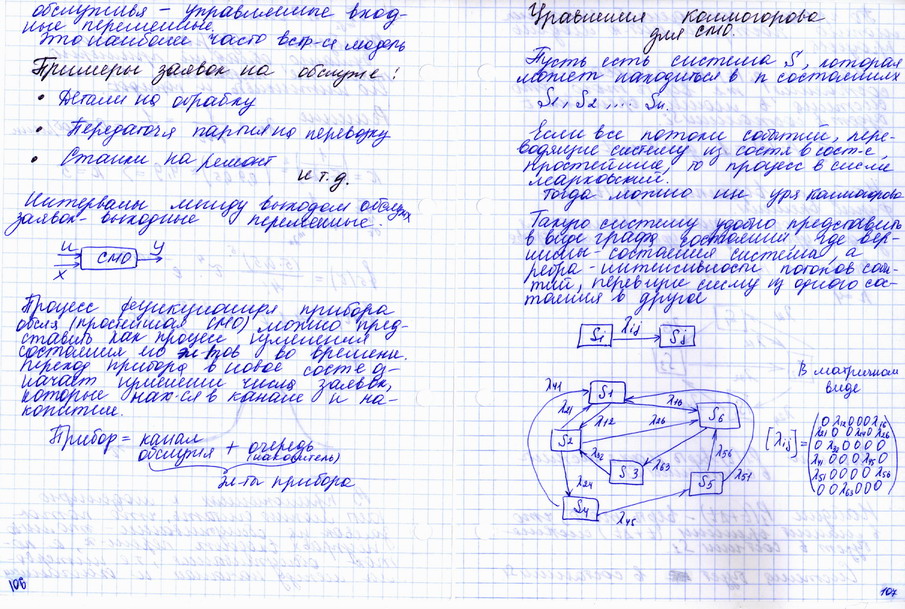 обслужив-я – управляемые вход-
ные переменные.
Это наиболее часто встр-ся модель
Примеры заявок на обслуж-е:
• Детали на обрабку
• Передаточ-я партия на перевозку
• Станки на ремонт
и т.д.
Интервалы между выходом обслуж-х
заявок - выходные переменные:
u
x
СМО
y
Процесс функцион-ия прибора
обсл-я (простейшая СМО) можно пред-
ставить как процесс изменения
состояния его эл-тов во времени.
Переход прибора в новое сост-е оз-
начает изменение числа заявок,
которые нах-ся в канале и на-
копителе.
Прибор = канал обслу-ия + очередь (накопитель)
эл-ты прибора
106
Уравнения Колмогорова
для СМО.
Пусть есть система S, которая
может находиться в n состояниях
S1, S2 ... Sn.
Если все потоки событий, пере-
водящие систему из сост-я в сост-е,
простейшие, то процесс в системе
марковский.
Тогда можно ур-я Колмогорова
Такую систему удобно представить
в виде графа состояний, где вер-
шины - состояния системы, а
ребра - интенсивности потоков собы-
тий, перев-щие сис-му из одного сос-
тояния в другое
Si λij Sj
В матричном
виде
λ41 S1
λ21 λ12 λ16 S6
S2 λ26
λ32 S3 λ63 λ56
S5 λ51
λ24
S4 λ45
[λij] =
0 λ12 0 0 0 λ16
λ21 0 0 λ24 0 λ26
0 λ32 0 0 0 0
λ41 0 0 0 λ45 0
λ51 0 0 0 0 λ56
0 0 λ63 0 0 0
107